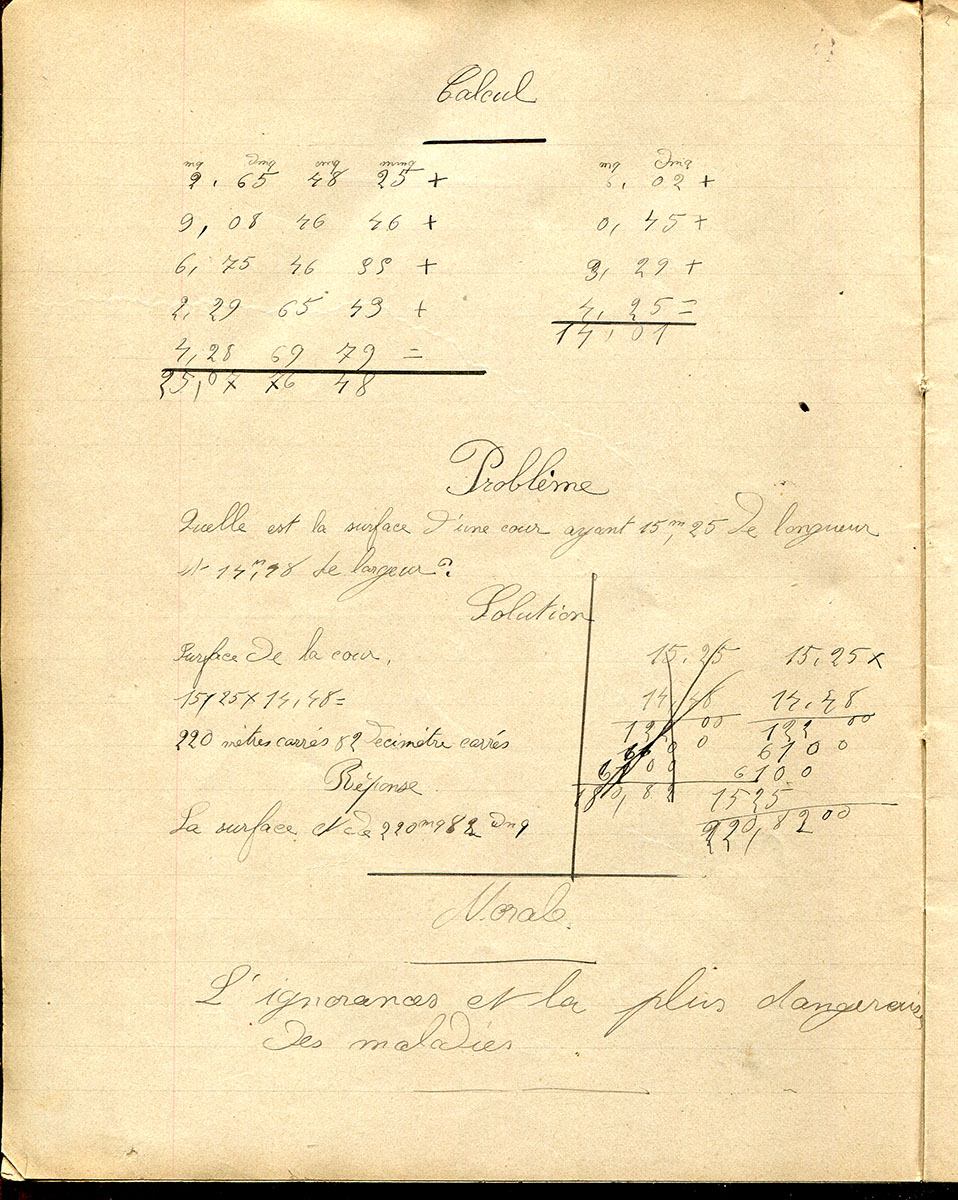 Calcul
mq dmq cmq mmq
2, 65 48 25 +
9, 08 46 46 +
6, 75 46 35 +
2, 29 65 43 +
4, 28 69 79 =
25, 07 76 48
mq dmq
6, 02 +
0, 45 +
3, 29 +
4, 25 =
14, 01
Problème
Quelle est la surface d'une cour ayant 15m,25 de longueur
et 14m,48 de largeur?
Solution
Surface de la cour,
15,25 x 14,48 =
220 mètres carrés 82 décimètre carrés
Réponse
La surface et de 220mq82 dmq
15,25
14,48
122 00
610 0
6100
180,82
15,25 x
14,48
122 00
610 0
6100
1525
220,8200
Morale.
L'ignorances et la plus dangereuse
des maladies